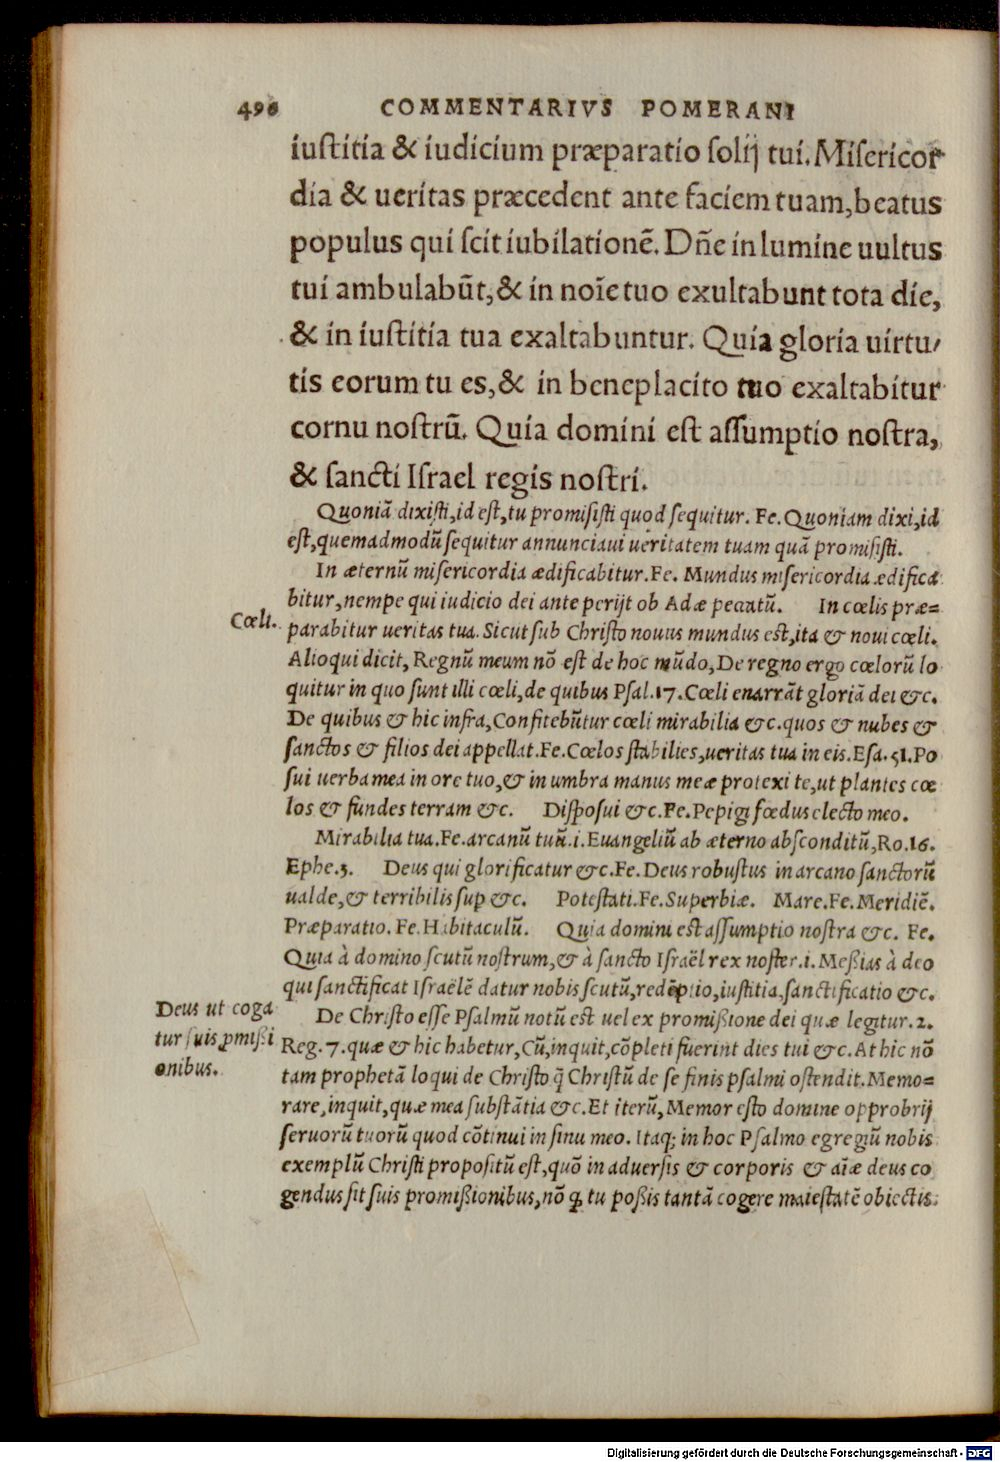 496 COMMENTARIVS POMERANI
iustitia & iudicium præparatio solij tui. Misericor
dia & ueritas præcedent ante faciem tuam, beatus
populus qui scit iubilationē. Dn̄e in lumine uultus
tui ambulabūt, & in noīe tuo exultabunt tota die,
& in iustitia tua exaltabuntur. Quia gloria uirtu/
tis eorum tu es, & in beneplacito tuo exaltabitur
cornu nostrū. Quia domini est assumptio nostra,
& sancti Israel regis nostri.
Quoniā dixisti, id est, tu promisisti quod sequitur. Fe. Quoniam dixi, id
est, quemadmodū sequitur annunciaui ueritatem tuam quā promisisti.
In æternū misericordia ædificabitur. Fe. Mundus misericordia ædifica
bitur, nempe qui iudicio dei ante perijt ob Adæ peccatū. In cœlis præ=
Cœli.
parabitur ueritas tua. Sicut sub Christo nouus mundus est, ita & noui cœli.
Alioqui dicit, Regnū meum nō est de hoc mūdo, De regno ergo cœlorū lo
quitur in quo sunt illi cœli, de quibus Psal. 17. Cœli enarrāt gloriā dei &c.
De quibus & hic infra, Confitebūtur cœli mirabilia &c. quos & nubes &
sanctos & filios dei appellat. Fe. Cœlos stabilies, ueritas tua in eis. Esa. 51. Po
sui uerba mea in ore tuo, & in umbra manus meæ protexi te, ut plantes cœ
los & fundes terram &c. Disposui &c. Fe. Pepigi fœdus electo meo.
Mirabilia tua. Fe. arcanū tuū .i. Euangeliū ab æterno absconditū, Ro. 16.
Ephe. 3. Deus qui glorificatur &c. Fe. Deus robustus in arcano sanctorū
ualde, & terribilis sup &c. Potestati. Fe. Superbiæ. Mare. Fe. Meridiē.
Præparatio. Fe. Habitaculū. Quia domini est assumptio nostra &c. Fe.
Quia à domino scutū nostrum, & à sancto Israël rex noster .i. Meßias à deo
qui sanctificat Israëlē datur nobis scutū, redēptio, iustitia, sanctificatio &c.
Deus ut coga
tur suis ꝓmißi
onibus.
De Christo esse Psalmū notū est uel ex promißione dei quæ legitur. 2.
Reg. 7. quæ & hic habetur, Cū, inquit, cōpleti fuerint dies tui &c. At hic nō
tam prophetā loqui de Christo q̄ Christū de se finis psalmi ostendit. Memo=
rare, inquit, quæ mea substātia &c. Et iterū, Memor esto domine opprobrij
seruorū tuorū quod cōtinui in sinu meo. Itaq; in hoc Psalmo egregiū nobis
exemplū Christi propositū est, quō in aduersis & corporis & aīæ deus co
gendus sit suis promißionibus, nō ꝙ tu poßis tantā cogere maiestatē obiectis
Digitalisierung gefördert durch die Deutsche Forschungsgemeinschaft - DFG